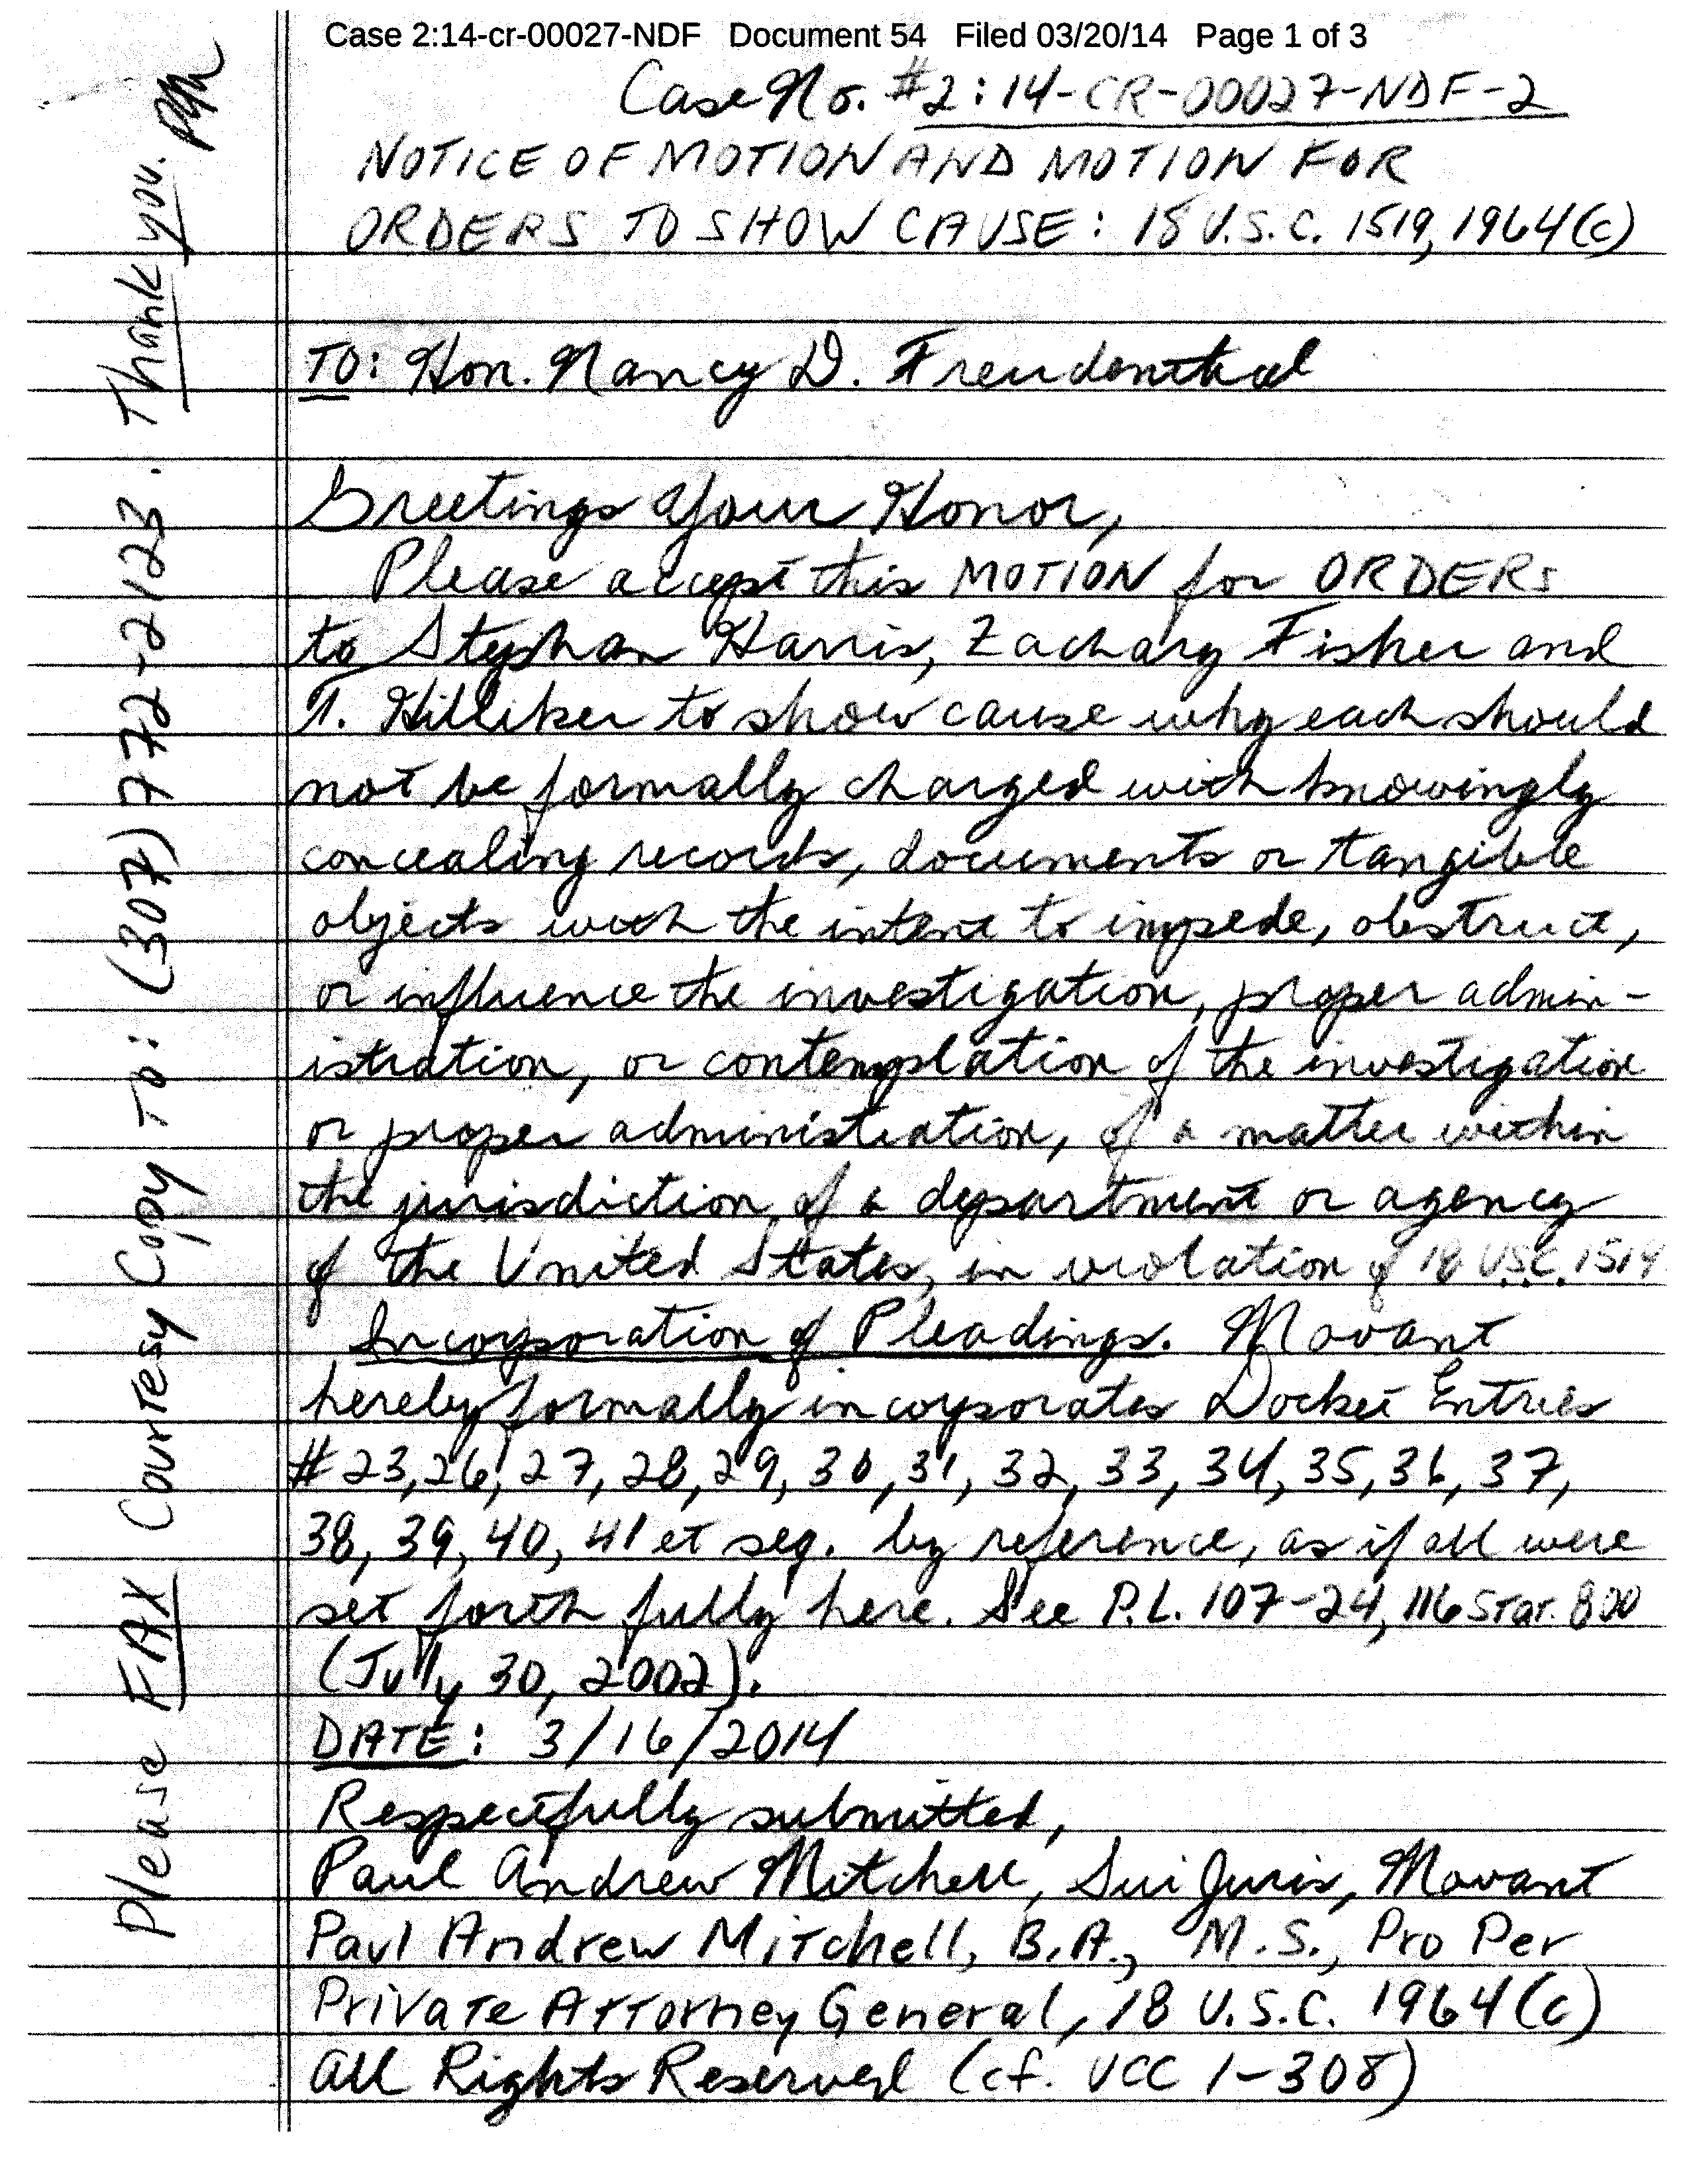 Case 2:14-cr-00027-NDF Document 54 Filed 03/20/14 Page 1 of 3
Case No. #2:14-CR-00027-NDF-2
NOTICE OF MOTION AND MOTION FOR
ORDERS TO SHOW CAUSE: 18 U.S.C. 1519, 1964(c)
TO: Hon. Nancy D. Freudenthal
Greetings Your Honor,
Please accept this MOTION for ORDERS
to Stephan Harris, Zachary Fisher and
T. Hilliker to show cause why each should
not be formally charged with knowingly
concealing records, documents or tangible
objects with the intent to impede, obstruct,
or influence the investigation, proper admin-
istration, or contemplation of the investigation
or proper administration, of a matter within
the jurisdiction of a department or agency
of the United States, in violation of 18 U.S.C. 1519
Incorporation of Pleadings. Movant
hereby formally incorporates Docket Entries
#23, 26, 27, 28, 29, 30, 31, 32, 33, 34, 35, 36, 37,
38, 39, 40, 41 et seq. by reference, as if all were
set forth fully here. See P.L. 107-24, 116 Stat. 800
(July 30, 2002).
DATE: 3/16/2014
Respectfully submitted,
Paul Andrew Mitchell, Sui Juris, Movant
Paul Andrew Mitchell, B.A., M.S., Pro Per
Private Attorney General, 18 U.S.C. 1964(c)
All Rights Reserved (cf. UCC 1-308)
Please FAX Courtesy Copy To: (307) 772-2123. Thank you.